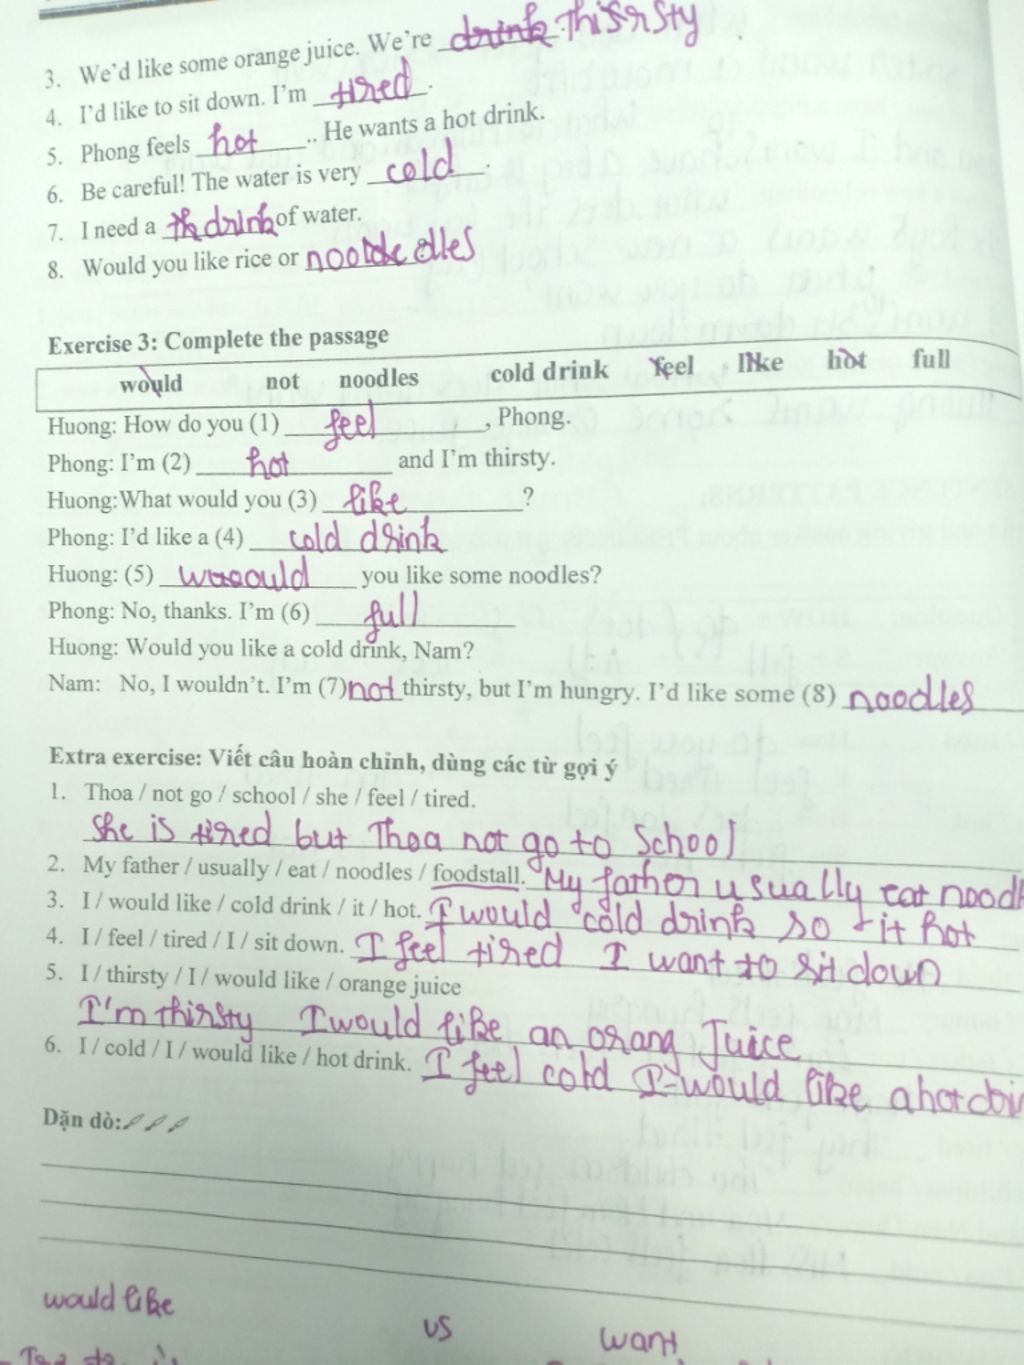 3. We'd like some orange juice. We're drink thisrsty
4. I'd like to sit down. I'm tired.
5. Phong feels hot .. He wants a hot drink.
6. Be careful! The water is very cold.
7. I need a th drink of water.
8. Would you like rice or noodles
Exercise 3: Complete the passage
would not noodles cold drink feel like hot full
Huong: How do you (1) feel, Phong.
Phong: I'm (2) hot and I'm thirsty.
Huong:What would you (3) like?
Phong: I'd like a (4) cold drink
Huong: (5) would you like some noodles?
Phong: No, thanks. I'm (6) full
Huong: Would you like a cold drink, Nam?
Nam: No, I wouldn't. I'm (7)not thirsty, but I'm hungry. I'd like some (8) noodles
Extra exercise: Viết câu hoàn chỉnh, dùng các từ gợi ý
1. Thoa / not go / school / she / feel / tired.
She is tired but Thoa not go to School
2. My father / usually / eat / noodles / foodstall. My father usually eat noodl
3. I / would like / cold drink / it / hot. I would cold drink so it hot
4. I / feel / tired / I / sit down. I feel tired I want to sit down
5. I / thirsty / I / would like / orange juice
I'm thirsty I would like an orang Juice
6. I / cold / I / would like / hot drink. I feel cold I would like a hot
Dặn dò:
would like vs want